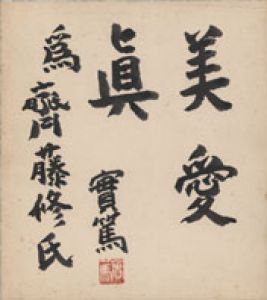 美愛
眞
實篤
爲齋藤修氏